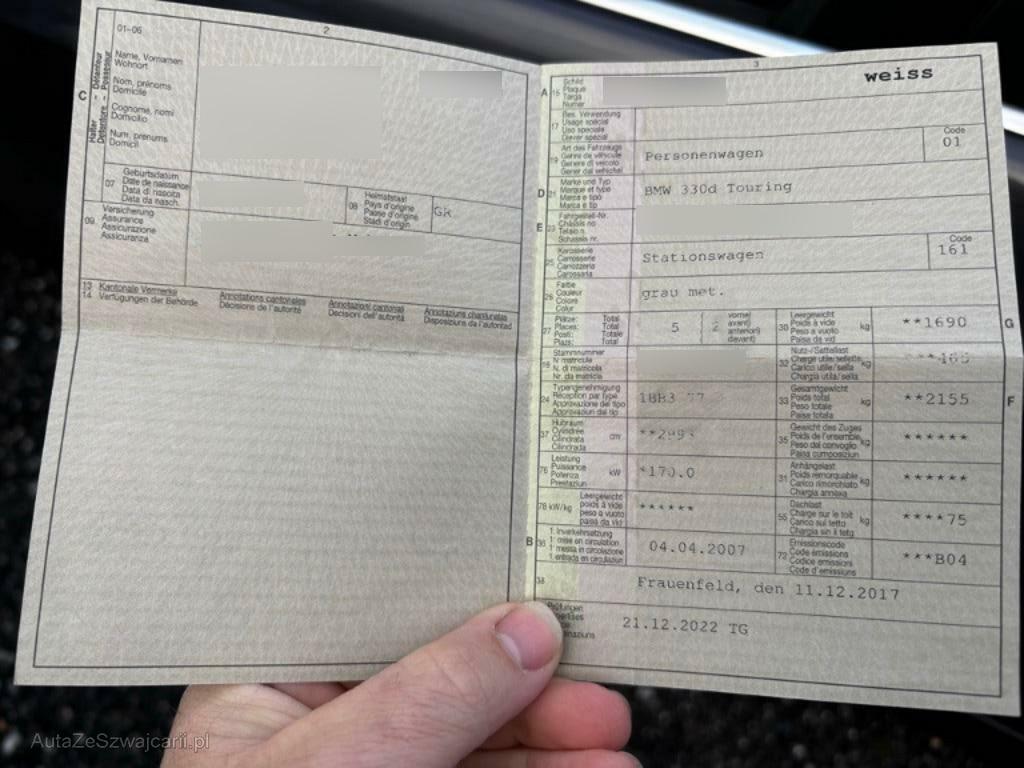 01-06
2
C
Halter - Détenteur
Detentore - Possessur
Name, Vornamen
Wohnort
Nom, prénoms
Domicile
Cognome, nomi
Domicilio
Num, prenums
Domicil
07
Geburtsdatum
Date de naissance
Data di nascita
Data da nasch.
08
Heimatstaat
Pays d'origine
Paese d'origine
Stadi d'origin
GR
09
Versicherung
Assurance
Assicurazione
Assicuranza
13 Kantonale Vermerke
14 Verfügungen der Behörde
Annotations cantonales
Décisions de l'autorité
Annotazioni cantonali
Decisioni dell'autorità
Annotaziuns chantunalas
Disposiziuns da l'autoritad
3
A
15
Schild
Plaque
Targa
Numer
weiss
17
Bes. Verwendung
Usage spécial
Uso speciale
Diever spezial
19
Art des Fahrzeugs
Genre de véhicule
Genere di veicolo
Gener dal vehichel
Personenwagen
Code
01
D
21
Marke und Typ
Marque et type
Marca e tipo
Marca e tip
BMW 330d Touring
E
23
Fahrgestell-Nr.
Châssis no
Telaio n.
Schassis nr.
25
Karosserie
Carrosserie
Carrozzeria
Carossaria
Stationswagen
Code
161
26
Farbe
Couleur
Colore
Colur
grau met.
27
Plätze: Total
Places: Total
Posti: Totale
Plazs: Total
5
2
vorne
avant
anteriori
davant
30
Leergewicht
Poids à vide
Peso a vuoto
Paisa da vid
kg
**1690
G
18
Stammnummer
N matricule
N. di matricola
Nr. da matricla
32
Nutz-/Sattellast
Charge utile/sellette
Carico utile/sella
Chargia utila/sella
kg
24
Typengenehmigung
Réception par type
Approvazione del tipo
Approvaziun dal tip
33
Gesamtgewicht
Poids total
Peso totale
Paisa totala
kg
**2155
F
37
Hubraum
Cylindrée
Cilindrata
Cilindrada
cm³
35
Gewicht des Zuges
Poids de l'ensemble
Peso del convoglio
Paisa cumposiziun
kg
******
76
Leistung
Puissance
Potenza
Prestaziun
kW
*170.0
31
Anhängelast
Poids remorquable
Carico rimorchiato
Chargia annexa
kg
******
78 kW/kg
Leergewicht
poids à vide
peso a vuoto
paisa da vid
******
55
Dachlast
Charge sur le toit
Carico sul tetto
Chargia sin il tetg
kg
****75
B
36
1. Inverkehrsetzung
1. mise en circulation
1. messa in circolazione
1. entrada en circulaziun
04.04.2007
72
Emissionscode
Code émissions
Codice emissioni
Code d'emissions
***B04
38
Frauenfeld, den 11.12.2017
Prüfungen
21.12.2022 TG
AutaZeSzwajcarii.pl